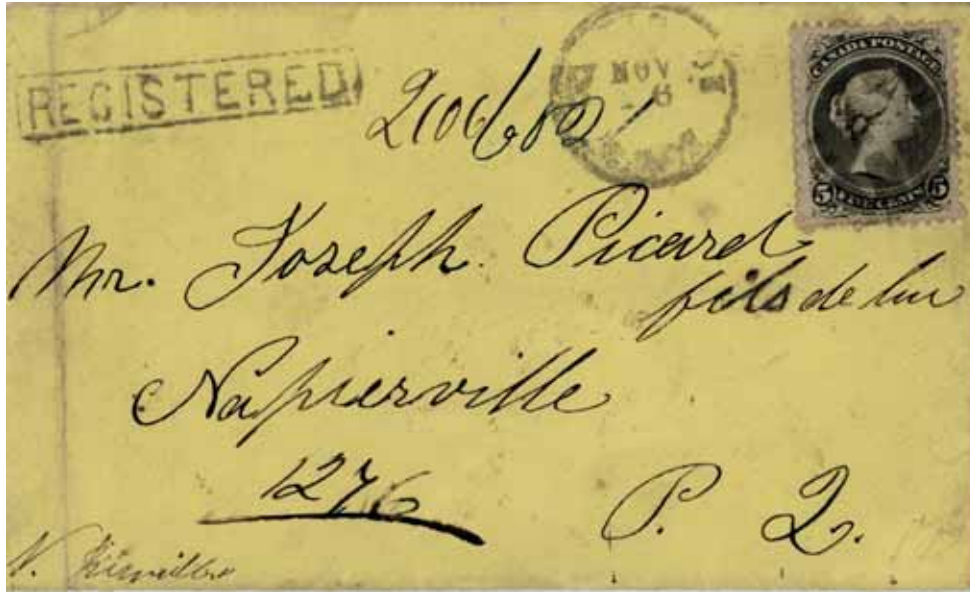 REGISTERED
NOV
6
CANADA POSTAGE
5 FIVE CENTS 5
Mr. Joseph Picard
fils de luc
Napierville
1276
P. Q.